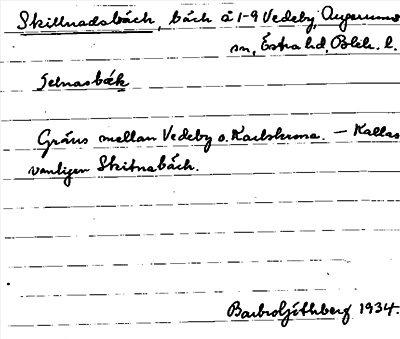 Skillnadsbäck, bäck å 1-9 Vedeby, Augerums
sn, Östra hd, Blek. l.
Gräns mellan Vedeby o. Karlskrona. — Kallas
vanligen Skitnabäck.
1934.